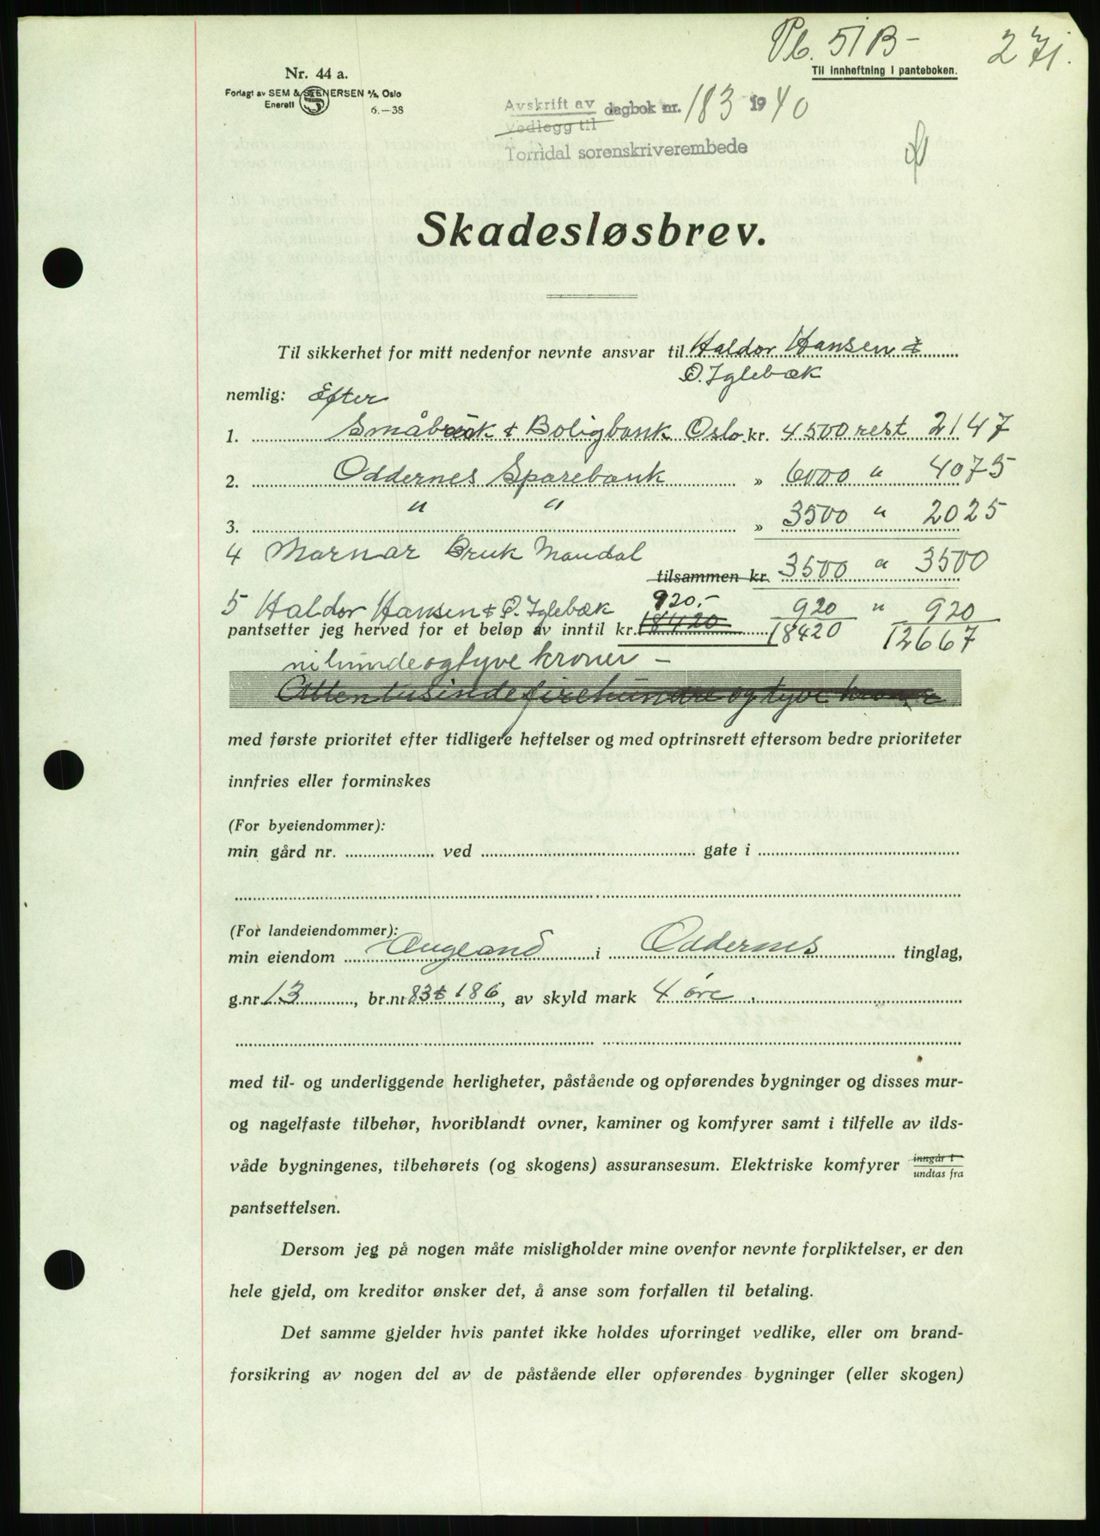 Pb. 51 B - 271.
Til innheftning i panteboken.
Nr. 44 a.
Forlagt av SEM & STENERSEN A/S, Oslo
Enerett 6.—38
Avskrift av dagbok nr. 183 1940
Vedlegg til
Torridal sorenskriverembede
Skadesløsbrev.
Til sikkerhet for mitt nedenfor nevnte ansvar til Haldor Hansen &
O. Iglebæk
nemlig: Efter
1. Småbruk & Boligbank Oslo kr. 4500 rest 2147
2. Oddernes Sparebank » 6000 " 4075
3. " " » 3500 " 2025
4 Marnar Bruk Mandal
tilsammen kr. 3500 " 3500
5 Haldor Hansen & O. Iglebæk 920.- 920 " 920
pantsetter jeg herved for et beløp av inntil kr. 18420 18420 12667
nihundeogtyve kroner —
Attentusindefirehundre og tyve kroner
med første prioritet efter tidligere heftelser og med optrinsrett eftersom bedre prioriteter
innfries eller forminskes
(For byeiendommer):
min gård nr. ved gate i
(For landeiendommer):
min eiendom Augland i Oddernes tinglag,
g.nr. 13, br.nr. 83 & 186, av skyld mark 4 øre.
med til- og underliggende herligheter, påstående og opførendes bygninger og disses mur-
og nagelfaste tilbehør, hvoriblandt ovner, kaminer og komfyrer samt i tilfelle av ilds-
våde bygningenes, tilbehørets (og skogens) assuransesum. Elektriske komfyrer inngår i
undtas fra
pantsettelsen.
Dersom jeg på nogen måte misligholder mine ovenfor nevnte forpliktelser, er den
hele gjeld, om kreditor ønsker det, å anse som forfallen til betaling.
Det samme gjelder hvis pantet ikke holdes uforringet vedlike, eller om brand-
forsikring av nogen del av de påstående eller opførendes bygninger (eller skogen)